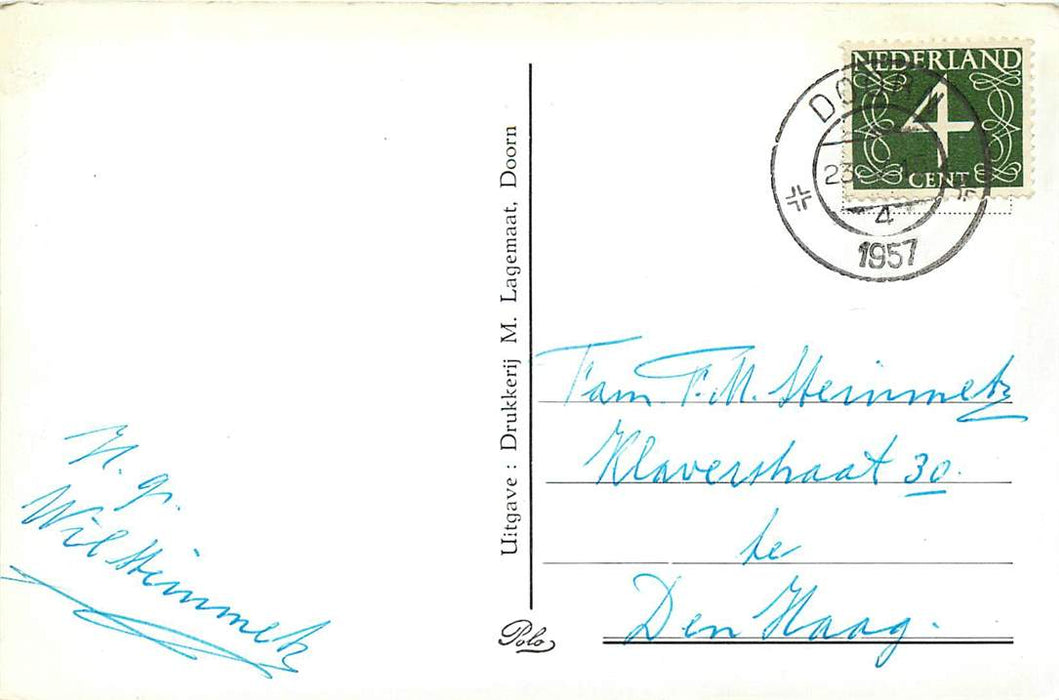 H. g.
Wil Steinmetz
Uitgave : Drukkerij M. Lagemaat, Doorn
Polo
NEDERLAND
4
CENT
DOORN
23
4
1957
Fam. F. M. Steinmetz
Klaverstraat 30.
te
Den Haag.